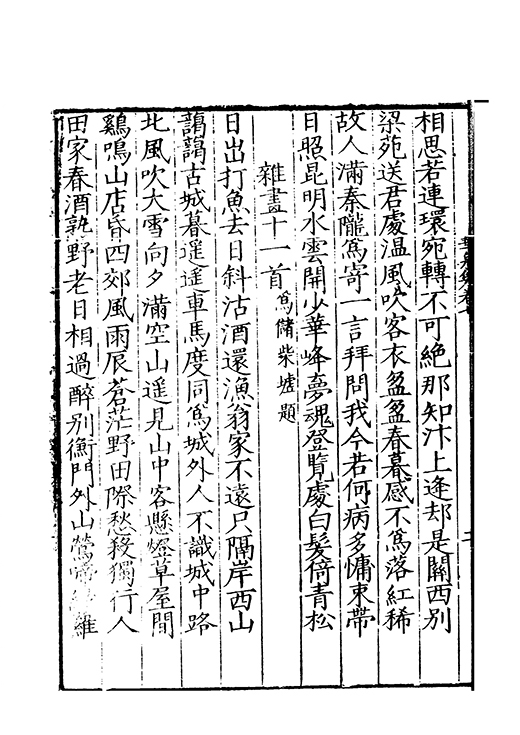 相思若連環宛轉不可絶那知汴上逢却是關西別
梁苑送君處温風吹客衣盈盈春暮感不爲落紅稀
故人滿秦隴爲寄一言拜問我今若何病多慵束帶
日照昆明水雲開少華峰夢魂登覽處白髮倚青松
雜畫十一首爲儲柴墟題
日出打魚去日斜沽酒還漁翁家不遠只隔岸西山
藹藹古城暮遥遥車馬度同爲城外人不識城中路
北風吹大雪向夕滿空山遥見山中客懸燈草屋間
鷄鳴山店昏四郊風雨辰蒼茫野田際愁殺獨行人
田家春酒熟野老日相過醉別衡門外山鶯啼蘿